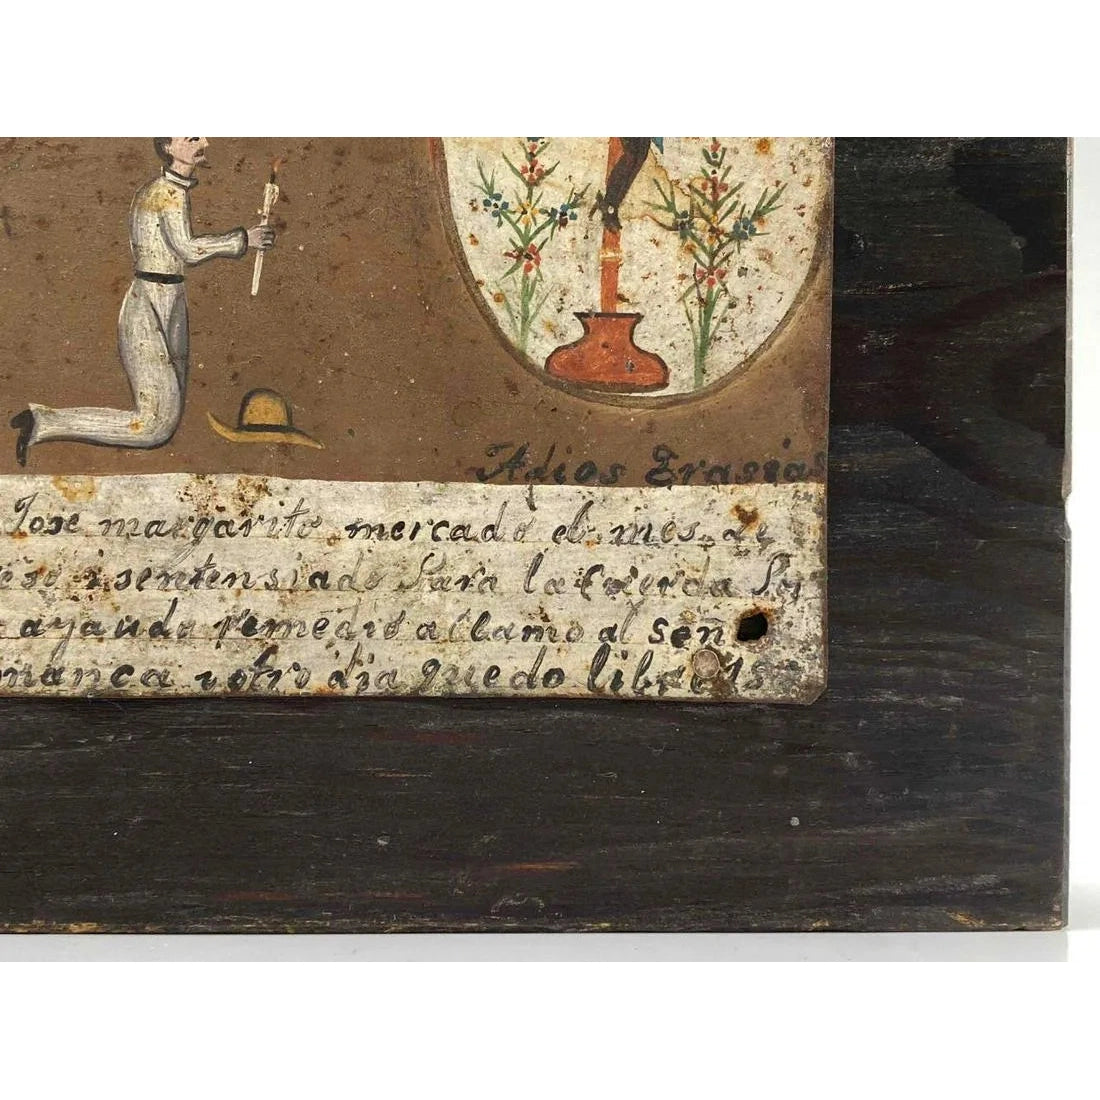 Adios Grasias
Jose margarito mercado el mes de
eso i sentensiado Para la Cuerda
ayando remedio a llamo al señ
manca i otro dia quedo libre 18